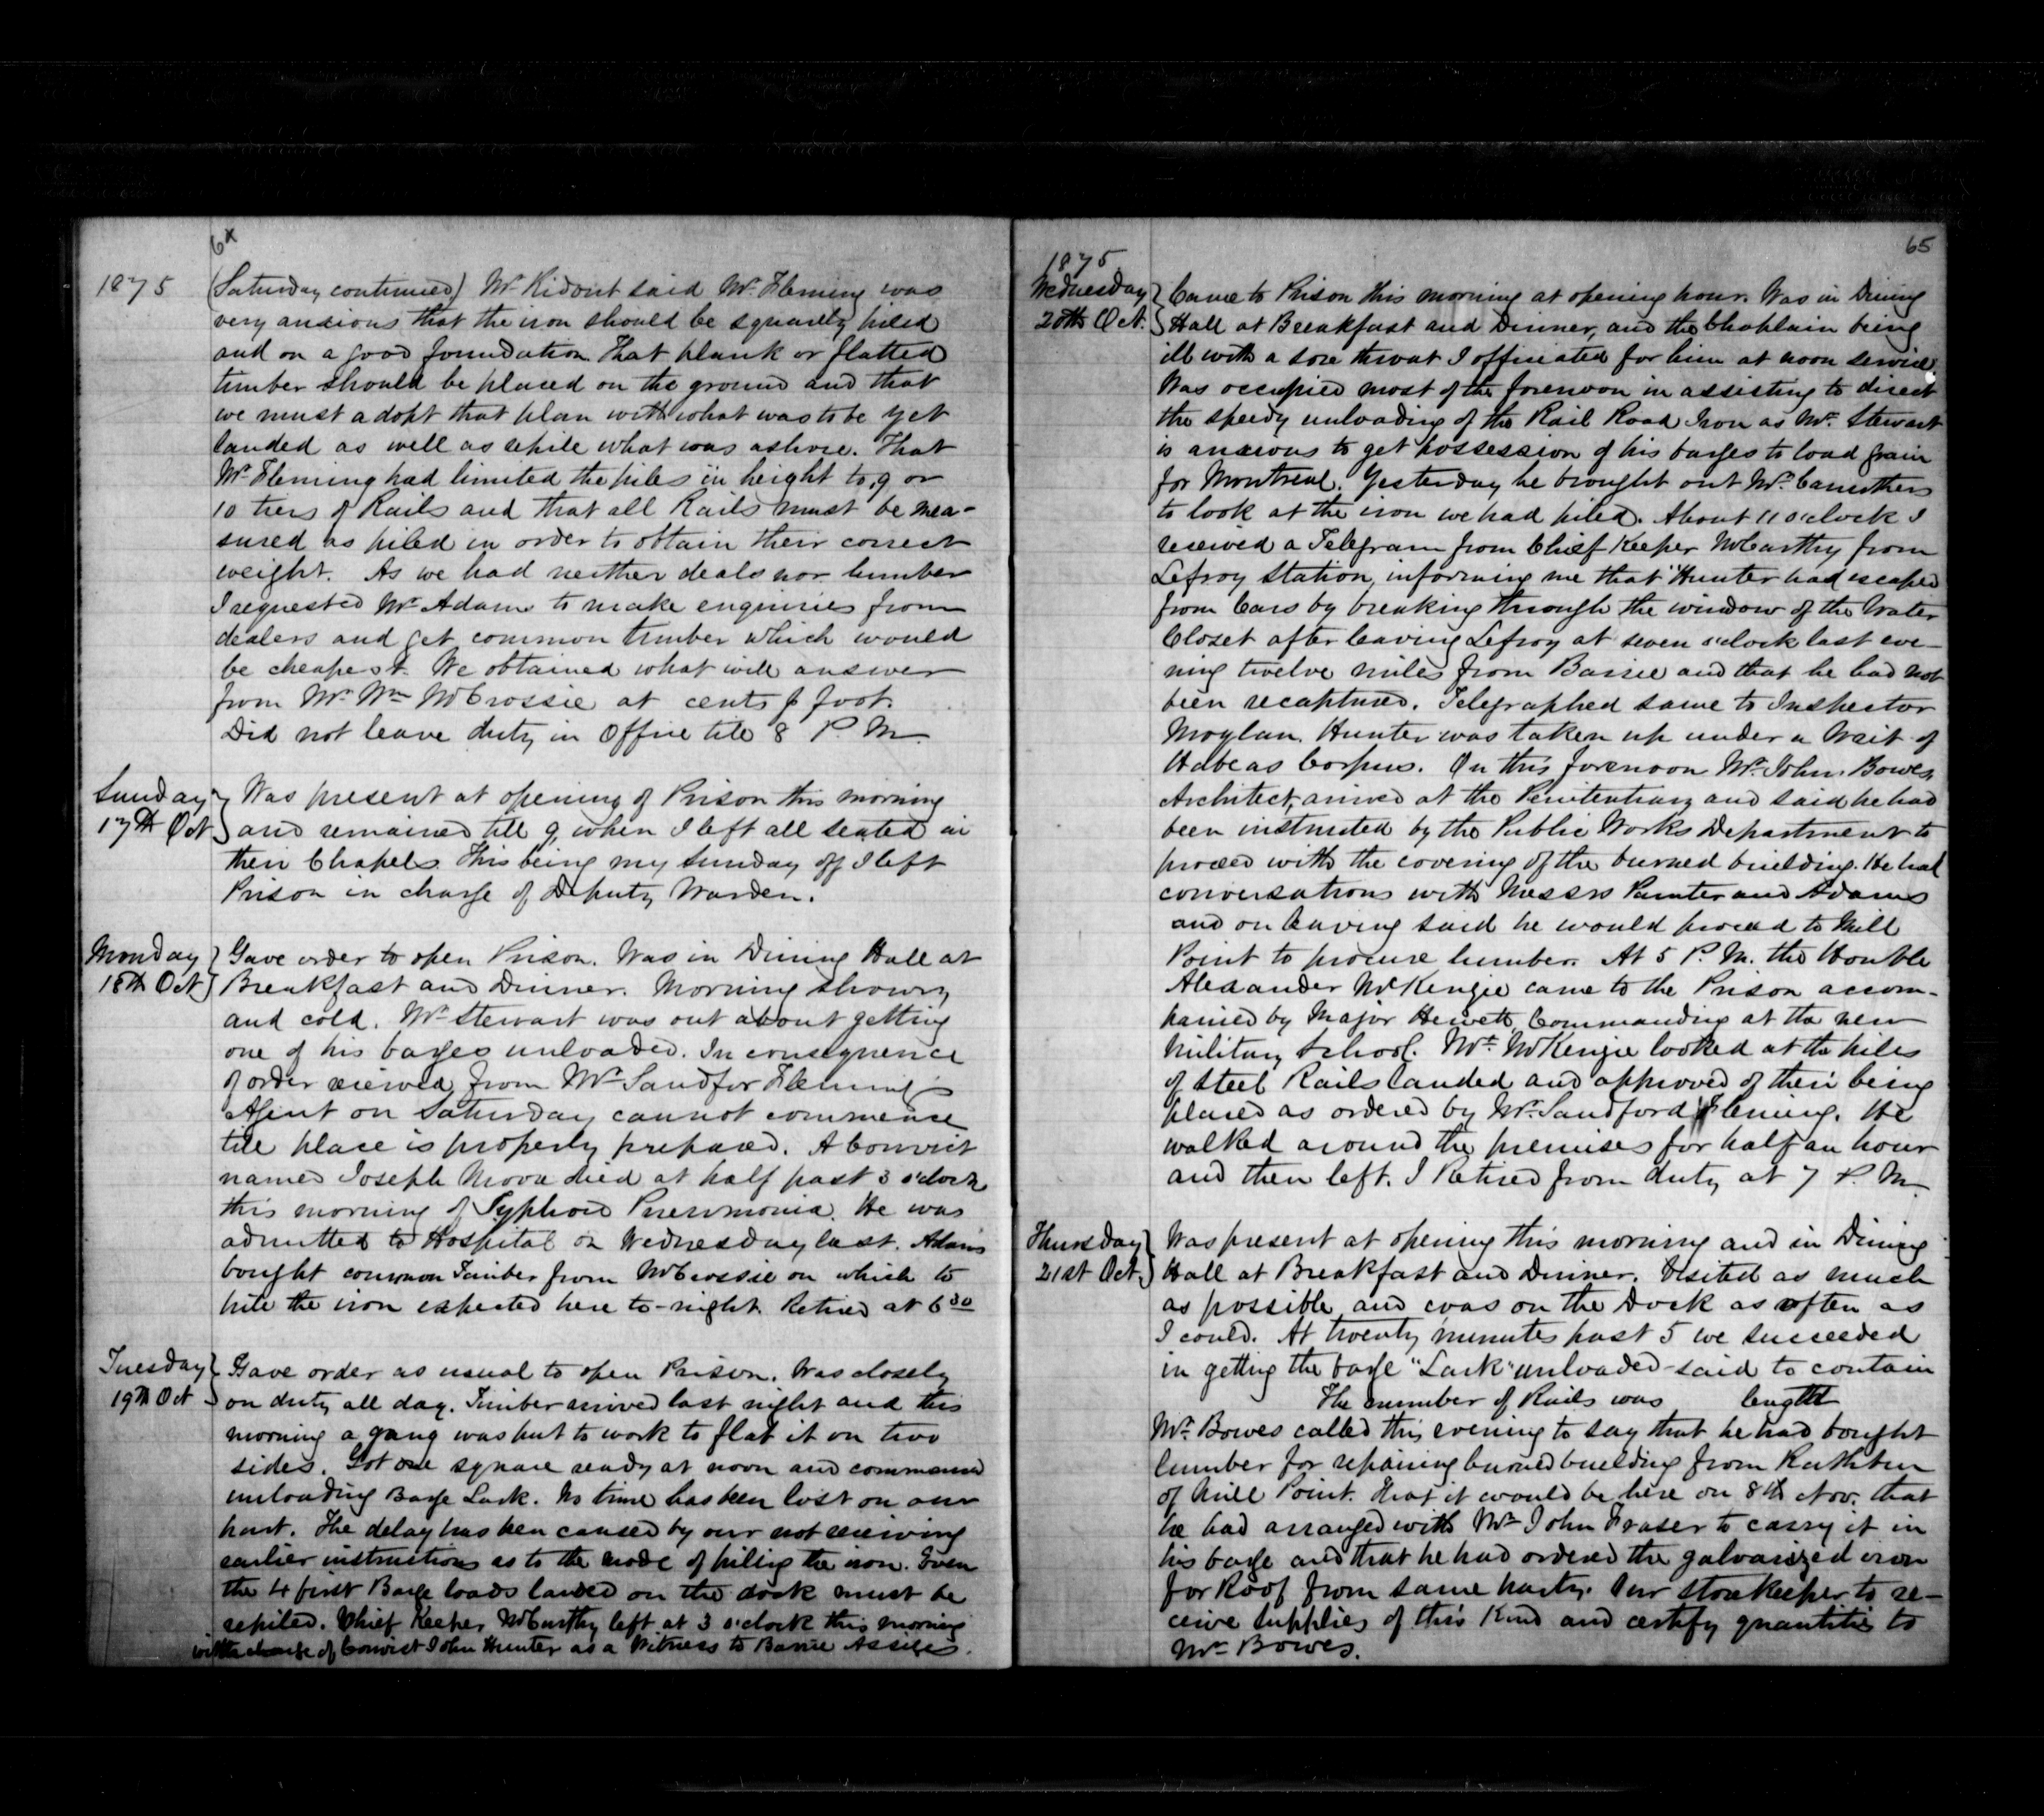 64
1875
(Saturday continued) Mr Ridout said Mr Fleming was
very anxious that the iron should be squarely piled
and on a good foundation. That plank or flatted
timber should be placed on the ground and that
we must adopt that plan with what was to be yet
landed as well as repile what was ashore. That
Mr Fleming had limited the piles in height to 9 or
10 tiers of Rails and that all Rails must be mea-
sured as piled in order to obtain their correct
weight. As we had neither deals nor lumber
I requested Mr Adams to make enquiries from
dealers and get common timber which would
be cheapest. We obtained what will answer
from Mr Wm McCrossie at cents p foot.
Did not leave duty in Office till 8 P. M.
Sunday
17th Oct
Was present at opening of Prison this morning
and remained till 9, when I left all seated in
their Chapels. This being my Sunday off I left
Prison in charge of Deputy Warden.
Monday
18th Oct
Gave order to open Prison. Was in Dining Hall at
Breakfast and Dinner. Morning showry
and cold. Mr Stewart was out about getting
one of his barges unloaded. In consequence
of order received from Mr Sandfor Fleming's
Agent on Saturday cannot commence
till place is properly prepared. A Convict
named Joseph died at half past 3 o'clock
this morning of Typhoid Pneumonia. He was
admitted to Hospital on Wednesday last. Adams
bought common Timber from McCrossie on which to
pile the iron expected here to-night. Retired at 6 30
Tuesday
19th Oct
Gave order as usual to open Prison. Was closely
on duty all day. Timber arrived last night and this
morning a gang was put to work to flat it on two
sides. Got one square ready at noon and commenced
unloading Barge Lark. No time has been lost on our
part. The delay has been caused by our not receiving
earlier instructions as to the mode of piling the iron. Even
the 4 first Barge loads landed on the dock must be
repiled. Chief Keeper McCarthy left at 3 o'clock this morning
with charge of Convict John Hunter as a Witness to Barrie Assizes.
65
1875
Wednesday
20th Oct.
Came to Prison this morning at opening hour. Was in Dining
Hall at Breakfast and Dinner, and the Chaplain being
ill with a sore throat I officiated for him at noon service.
Was occupied most of the forenoon in assisting to direct
the speedy unloading of the Rail Road Iron as Mr. Stewart
is anxious to get possession of his barges to load grain
for Montreal. Yesterday he brought out Mr. Carruthers
to look at the iron we had piled. About 11 o'clock I
received a Telegram from Chief Keeper McCarthy from
Lefroy Station, informing me that Hunter had escaped
from Cars by breaking through the window of the Water
Closet after leaving Lefroy at seven o'clock last eve-
ning twelve miles from Barrie and that he had not
been recaptured. Telegraphed same to Inspector
Moylan. Hunter was taken up under a Writ of
Habeas Corpus. On this forenoon Mr. John Bowes,
Architect, arrived at the Penitentiary and said he had
been instructed by the Public Works Department to
proceed with the covering of the burned building. He had
conversations with Messrs Painter and Adams
and on leaving said he would proceed to Mill
Point to procure lumber. At 5 P. M. the Honble
Alexander McKenzie came to the Prison accom-
panied by Major Hewett, Commanding at the new
Military School. Mr. McKenzie looked at the piles
of Steel Rails landed and approved of their being
placed as ordered by Mr. Sandford Fleming. He
walked around the premises for half an hour
and then left. I Retired from duty at 7 P. M.
Thursday
21st Oct.
Was present at opening this morning and in Dining
Hall at Breakfast and Dinner. Visited as much
as possible and was on the Dock as often as
I could. At twenty minutes past 5 we succeeded
in getting the barge "Lark" unloaded - said to contain
The number of Rails was length
Mr. Bowes called this evening to say that he had bought
lumber for repairing burned building from Rathbun
of Mill Point. That it would be here on 8th Nov. that
he had arranged with Mr John Fraser to carry it in
his barge and that he had ordered the galvanized iron
for Roof from same party. Our storekeeper to re-
ceive supplies of this Kind and certify quantities to
Mr Bowes.